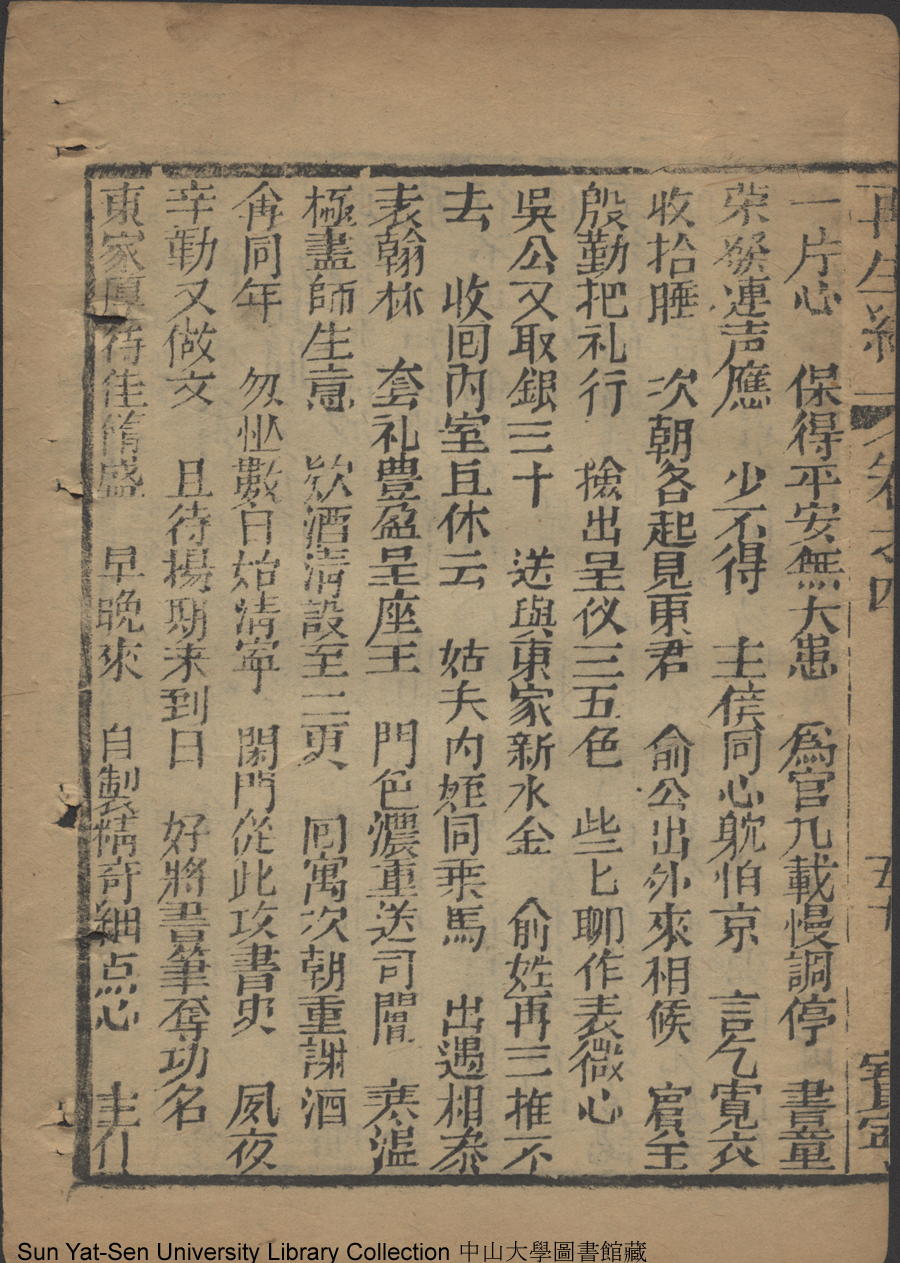 再生緣 卷之四 五十
一片心 保得平安無大患 為官九載慢調停 書童
荣發連声應 少不得 主僕同心躭怕京 言乞寬衣
收拾睡 次朝各起見東君 俞公出外來相候 賓主
殷勤把礼行 撿出呈仪三五色 些匕聊作表微心
吳公又取銀三十 送與東家新水金 俞姓再三推不
去 收回内室且休云 姑夫内姪同乗馬 出遇相叅
表翰林 套礼豊盈呈座主 門色濃重送司閽 寒温
極盡師生意 欵酒清設至二更 回寓次朝重謝酒
㑹同年 勿忙數日始清寧 閑門從此攻書史 夙夜
辛勤又做文 且待塲期来到日 好將書筆奪功名
東家厚待佳餚盛 早晚來 自製精奇細点心 主仆
Sun Yat-Sen University Library Collection 中山大學圖書館藏